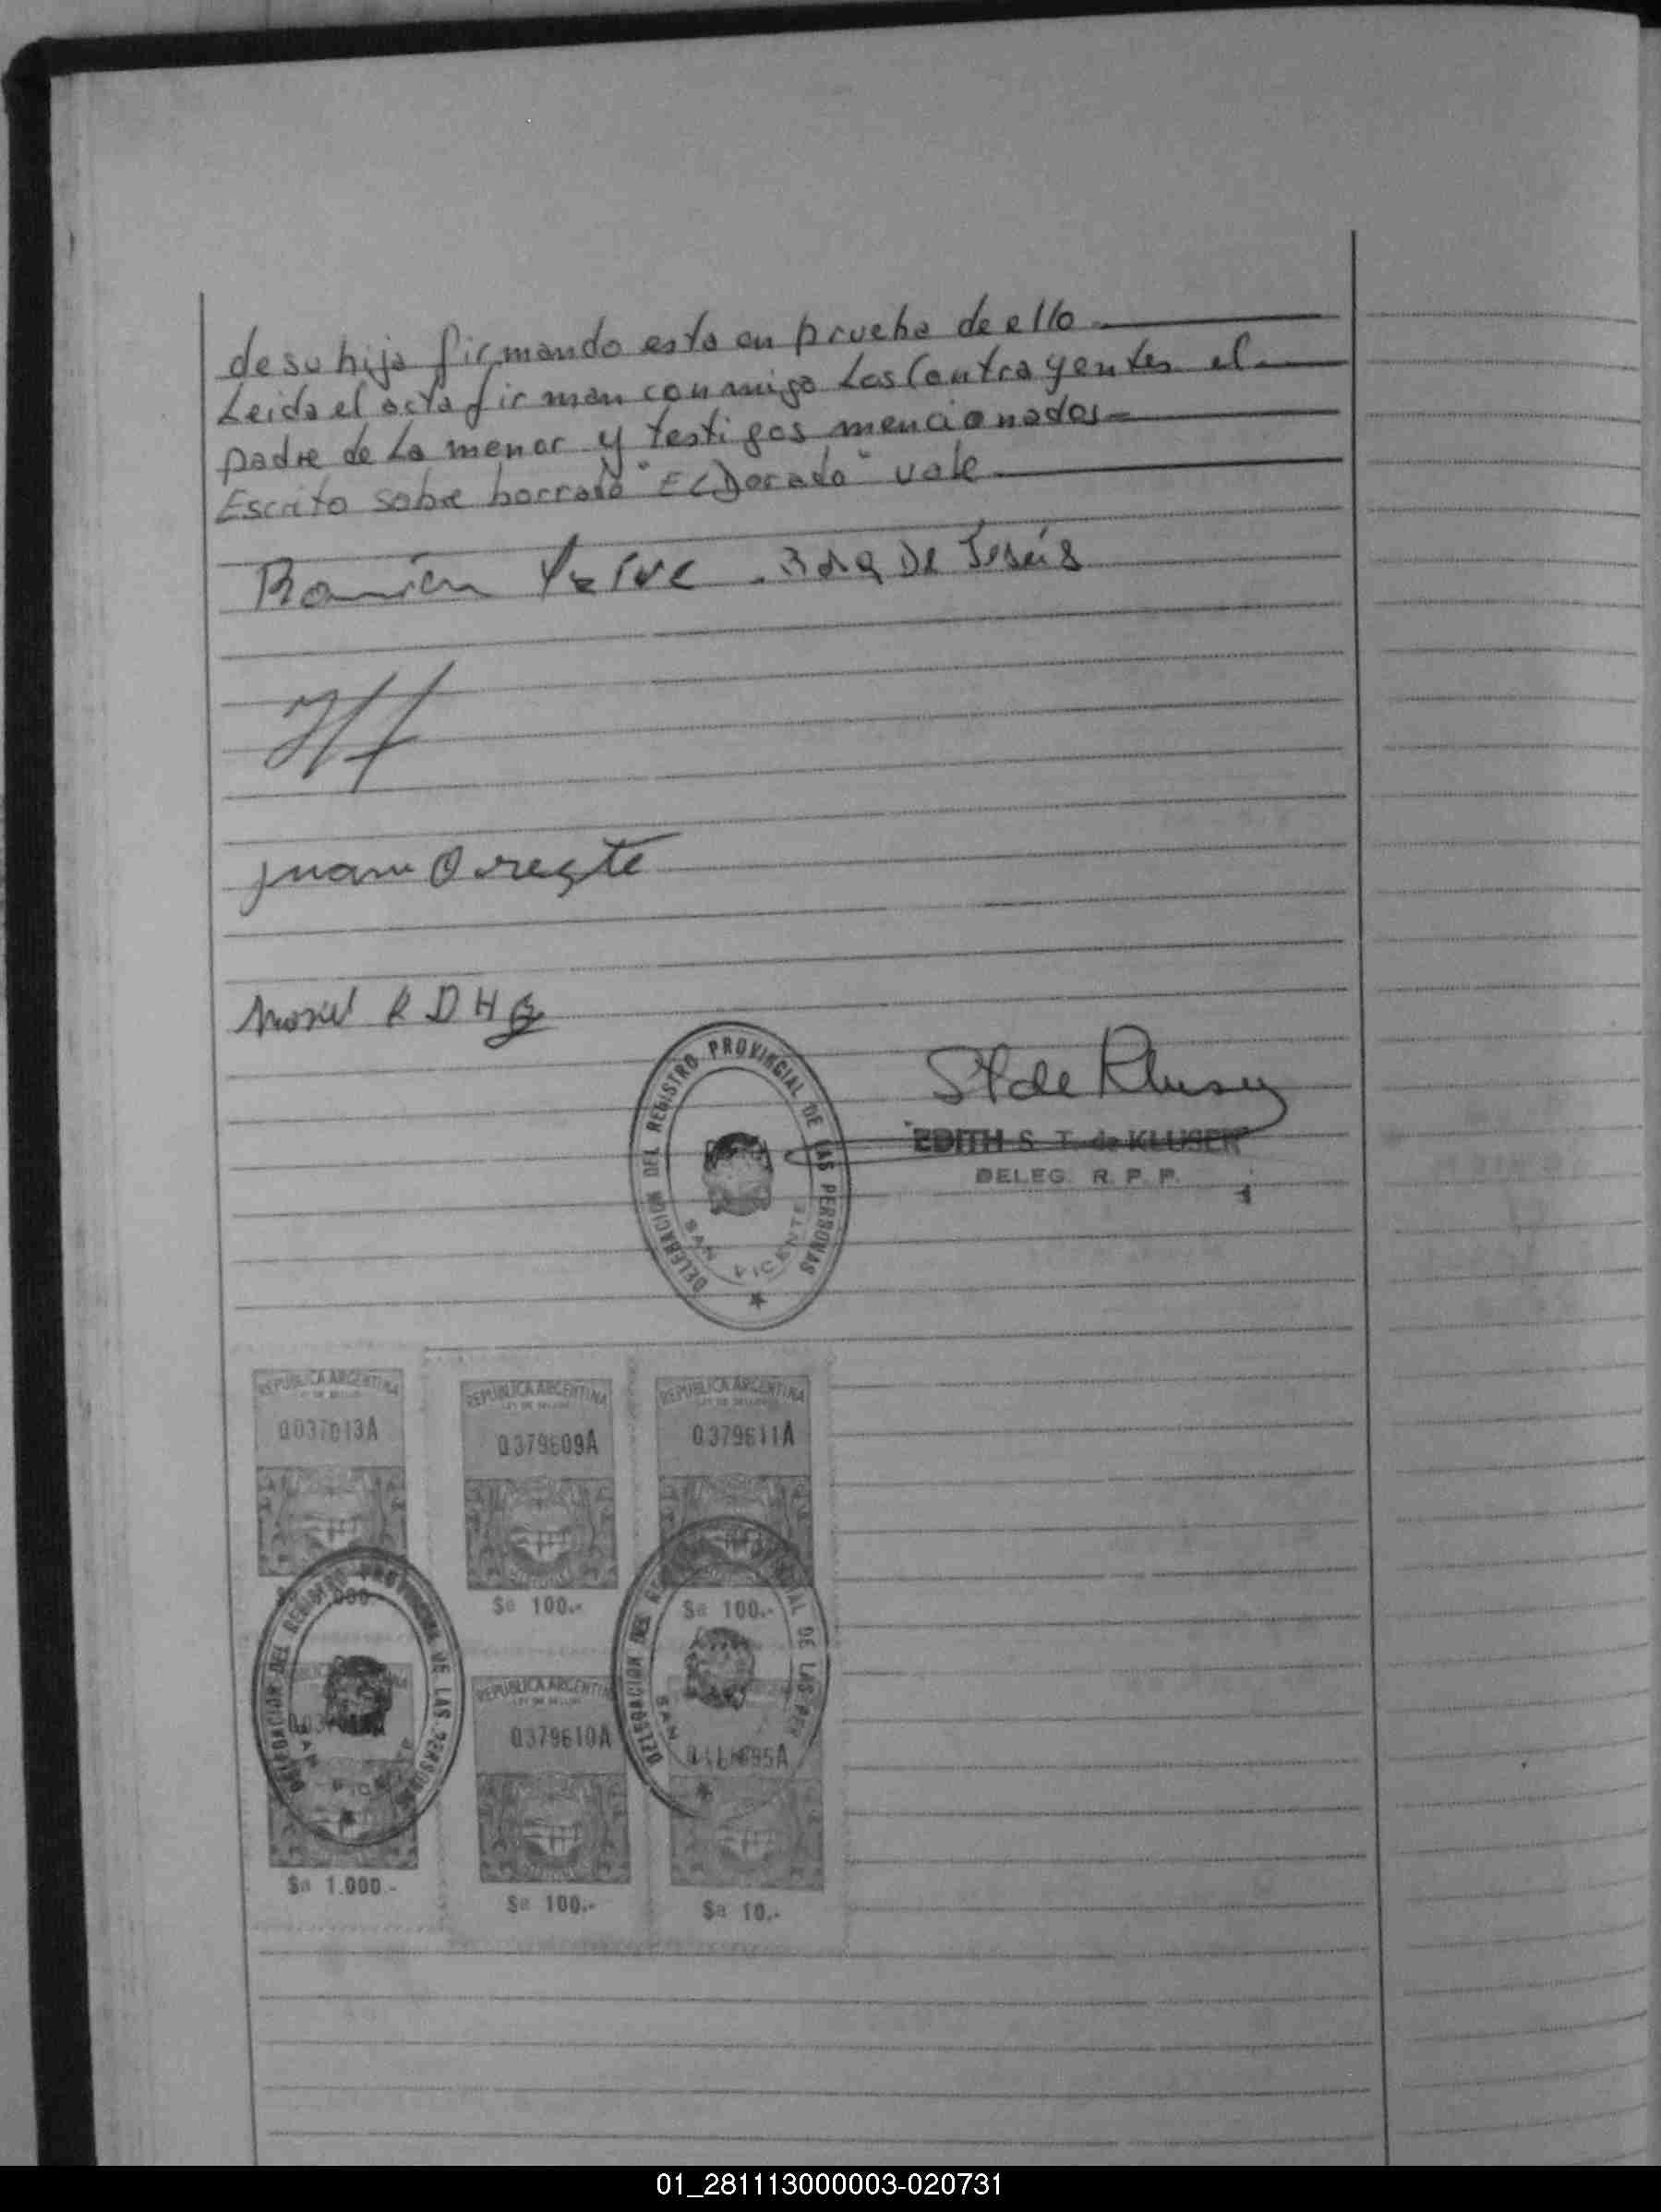 de su hija firmando esta en prueba de ello
Leida el acta firman conmigo Los Contrayentes el
padre de La menor y testigos mencionados
Escrito sobre borrado "ELDorado" vale
Ramón De Jesús
Juan Oreste
R D H
DELEGACION DEL REGISTRO PROVINCIAL DE LAS PERSONAS
SAN VICENTE
St de Kluser
EDITH S. T. de KLUSER
DELEG. R. P. P.
REPUBLICA ARGENTINA
0037013A
REPUBLICA ARGENTINA
LEY DE SELLOS
0379609A
$a 100.-
REPUBLICA ARGENTINA
LEY DE SELLOS
0379611A
$a 100.-
$a 1.000.-
REPUBLICA ARGENTINA
LEY DE SELLOS
0379610A
$a 100.-
$a 10.-
DELEGACION DEL REGISTRO PROVINCIAL DE LAS PERSONAS
SAN VICENTE
DELEGACION DEL REGISTRO PROVINCIAL DE LAS PER
SAN
01_281113000003-020731